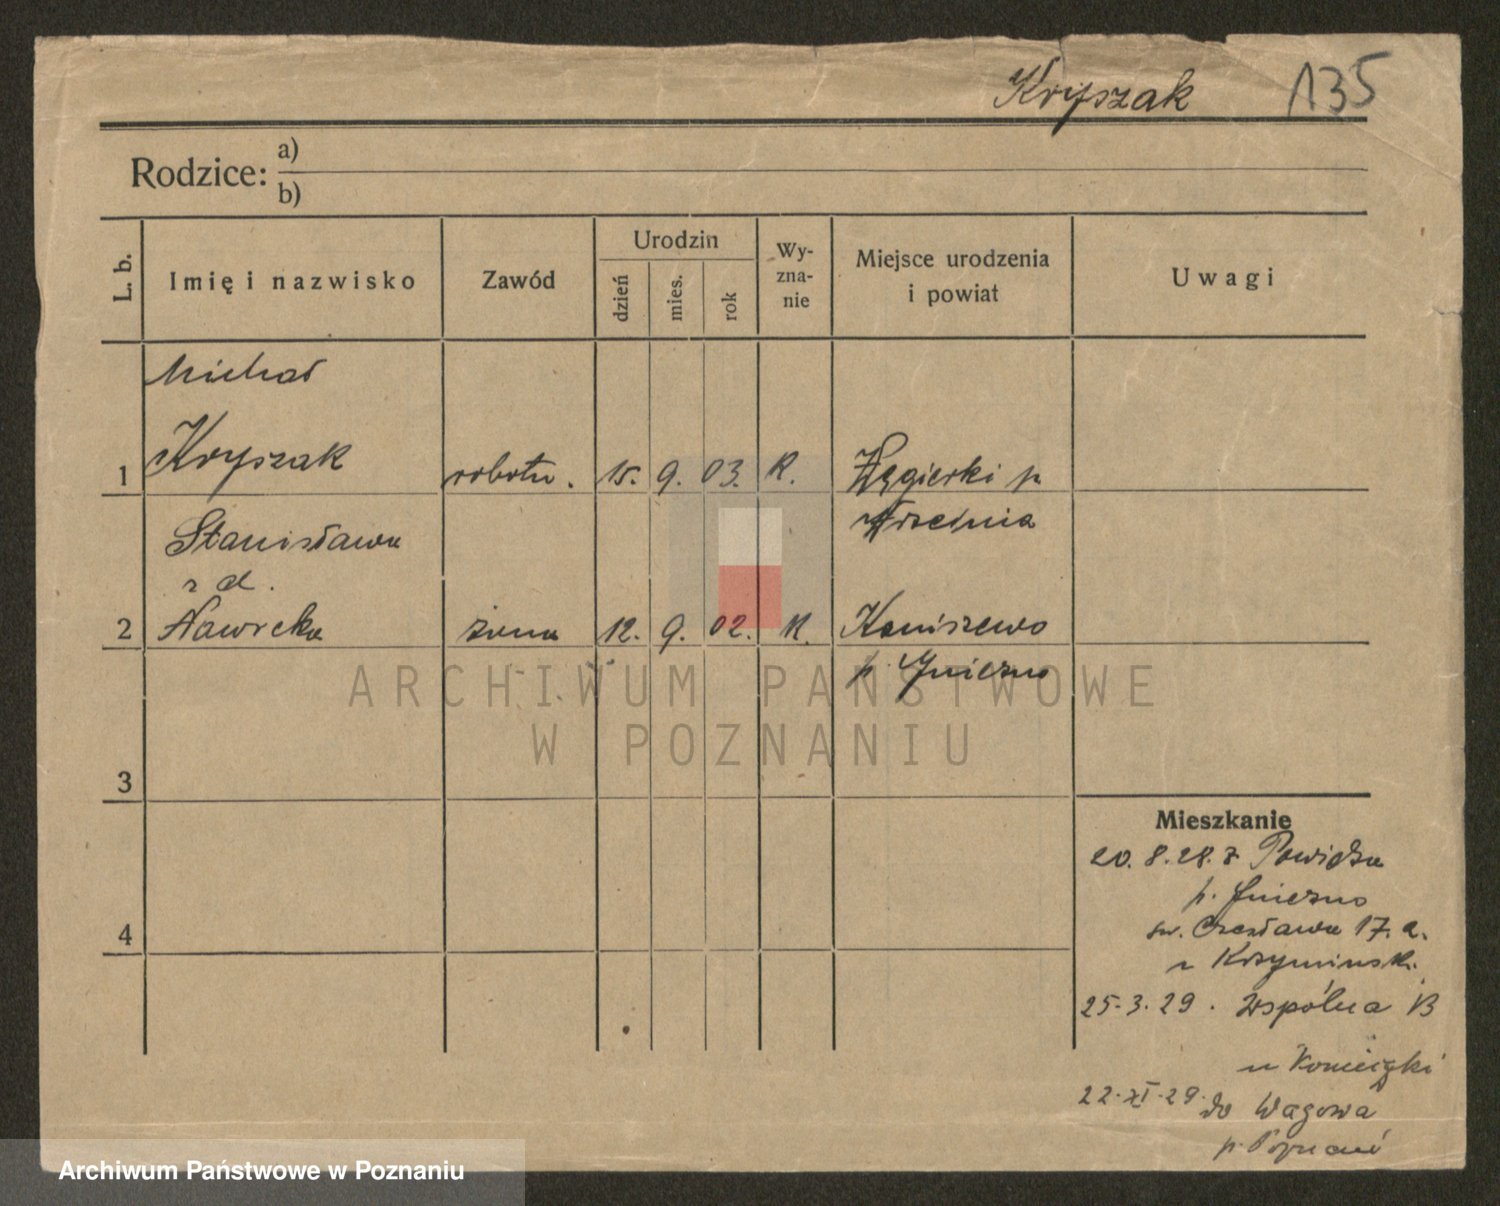 Kryszak 135
Rodzice: a)
b)
L. b.
Imię i nazwisko
Zawód
Urodzin
dzień
mies.
rok
Wy-
zna-
nie
Miejsce urodzenia
i powiat
Uwagi
Michał
1 Kryszak robotn. 15. 9. 03. K. Węgierki p.
Września
Stanisława
z d.
2 Nawrcka żona 12. 9. 02. K. Kaniszewo
p. Gniezno
ARCHIWUM PAŃSTWOWE
W POZNANIU
3
4
Mieszkanie
20. 8. 28. z Powidza
p. Gniezno
św. Czesława 17. a.
u Krzymińsk.
25.3.29. Wspólna
u
22.XI.29. do Wagowa
p. Poznań
Archiwum Państwowe w Poznaniu